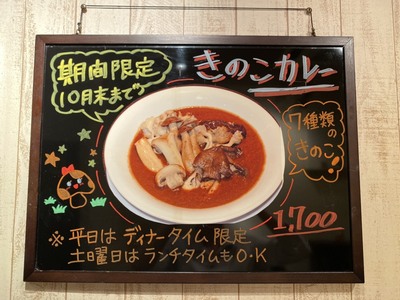 期間限定
10月末まで
きのこカレー
7種類の
きのこ!
1,700
※ 平日は ディナータイム 限定
土曜日は ランチタイムも O・K